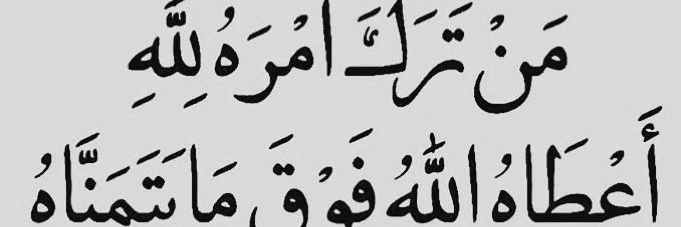 مَنْ تَرَكَ أَمْرَهُ لِلَّهِ
أَعْطَاهُ اللَّهُ فَوْقَ مَا يَتَمَنَّاهُ